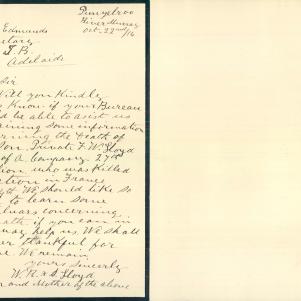 Punyelroo
River Murray
Oct. 22nd/16
Edmunds
S. B.
Adelaide
Sir
Will you Kindly
Know if your Bureau
be able to asist us
some information
the death of
Son Private F. W. Lloyd
of A Company 27th
who was killed
in France
We should like so
to learn some
concerning
death if you can
may help us. We shall
thankful for
We remain
yours sincerly
W. R. & A Lloyd
and Mother of the above